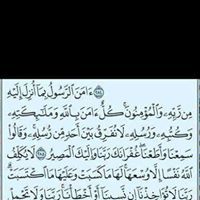 ءَامَنَ ٱلرَّسُولُ بِمَآ أُنزِلَ إِلَيْهِ
مِن رَّبِّهِۦ وَٱلْمُؤْمِنُونَ ۚ كُلٌّ ءَامَنَ بِٱللَّهِ وَمَلَـٰٓئِكَتِهِۦ
وَكُتُبِهِۦ وَرُسُلِهِۦ لَا نُفَرِّقُ بَيْنَ أَحَدٍ مِّن رُّسُلِهِۦ ۚ وَقَالُوا۟
سَمِعْنَا وَأَطَعْنَا ۖ غُفْرَانَكَ رَبَّنَا وَإِلَيْكَ ٱلْمَصِيرُ ٢٨٥ لَا يُكَلِّفُ
ٱللَّهُ نَفْسًا إِلَّا وُسْعَهَا ۚ لَهَا مَا كَسَبَتْ وَعَلَيْهَا مَا ٱكْتَسَبَتْ ۗ
رَبَّنَا لَا تُؤَاخِذْنَآ إِن نَّسِينَآ أَوْ أَخْطَأْنَا ۚ رَبَّنَا وَلَا تَحْمِلْ